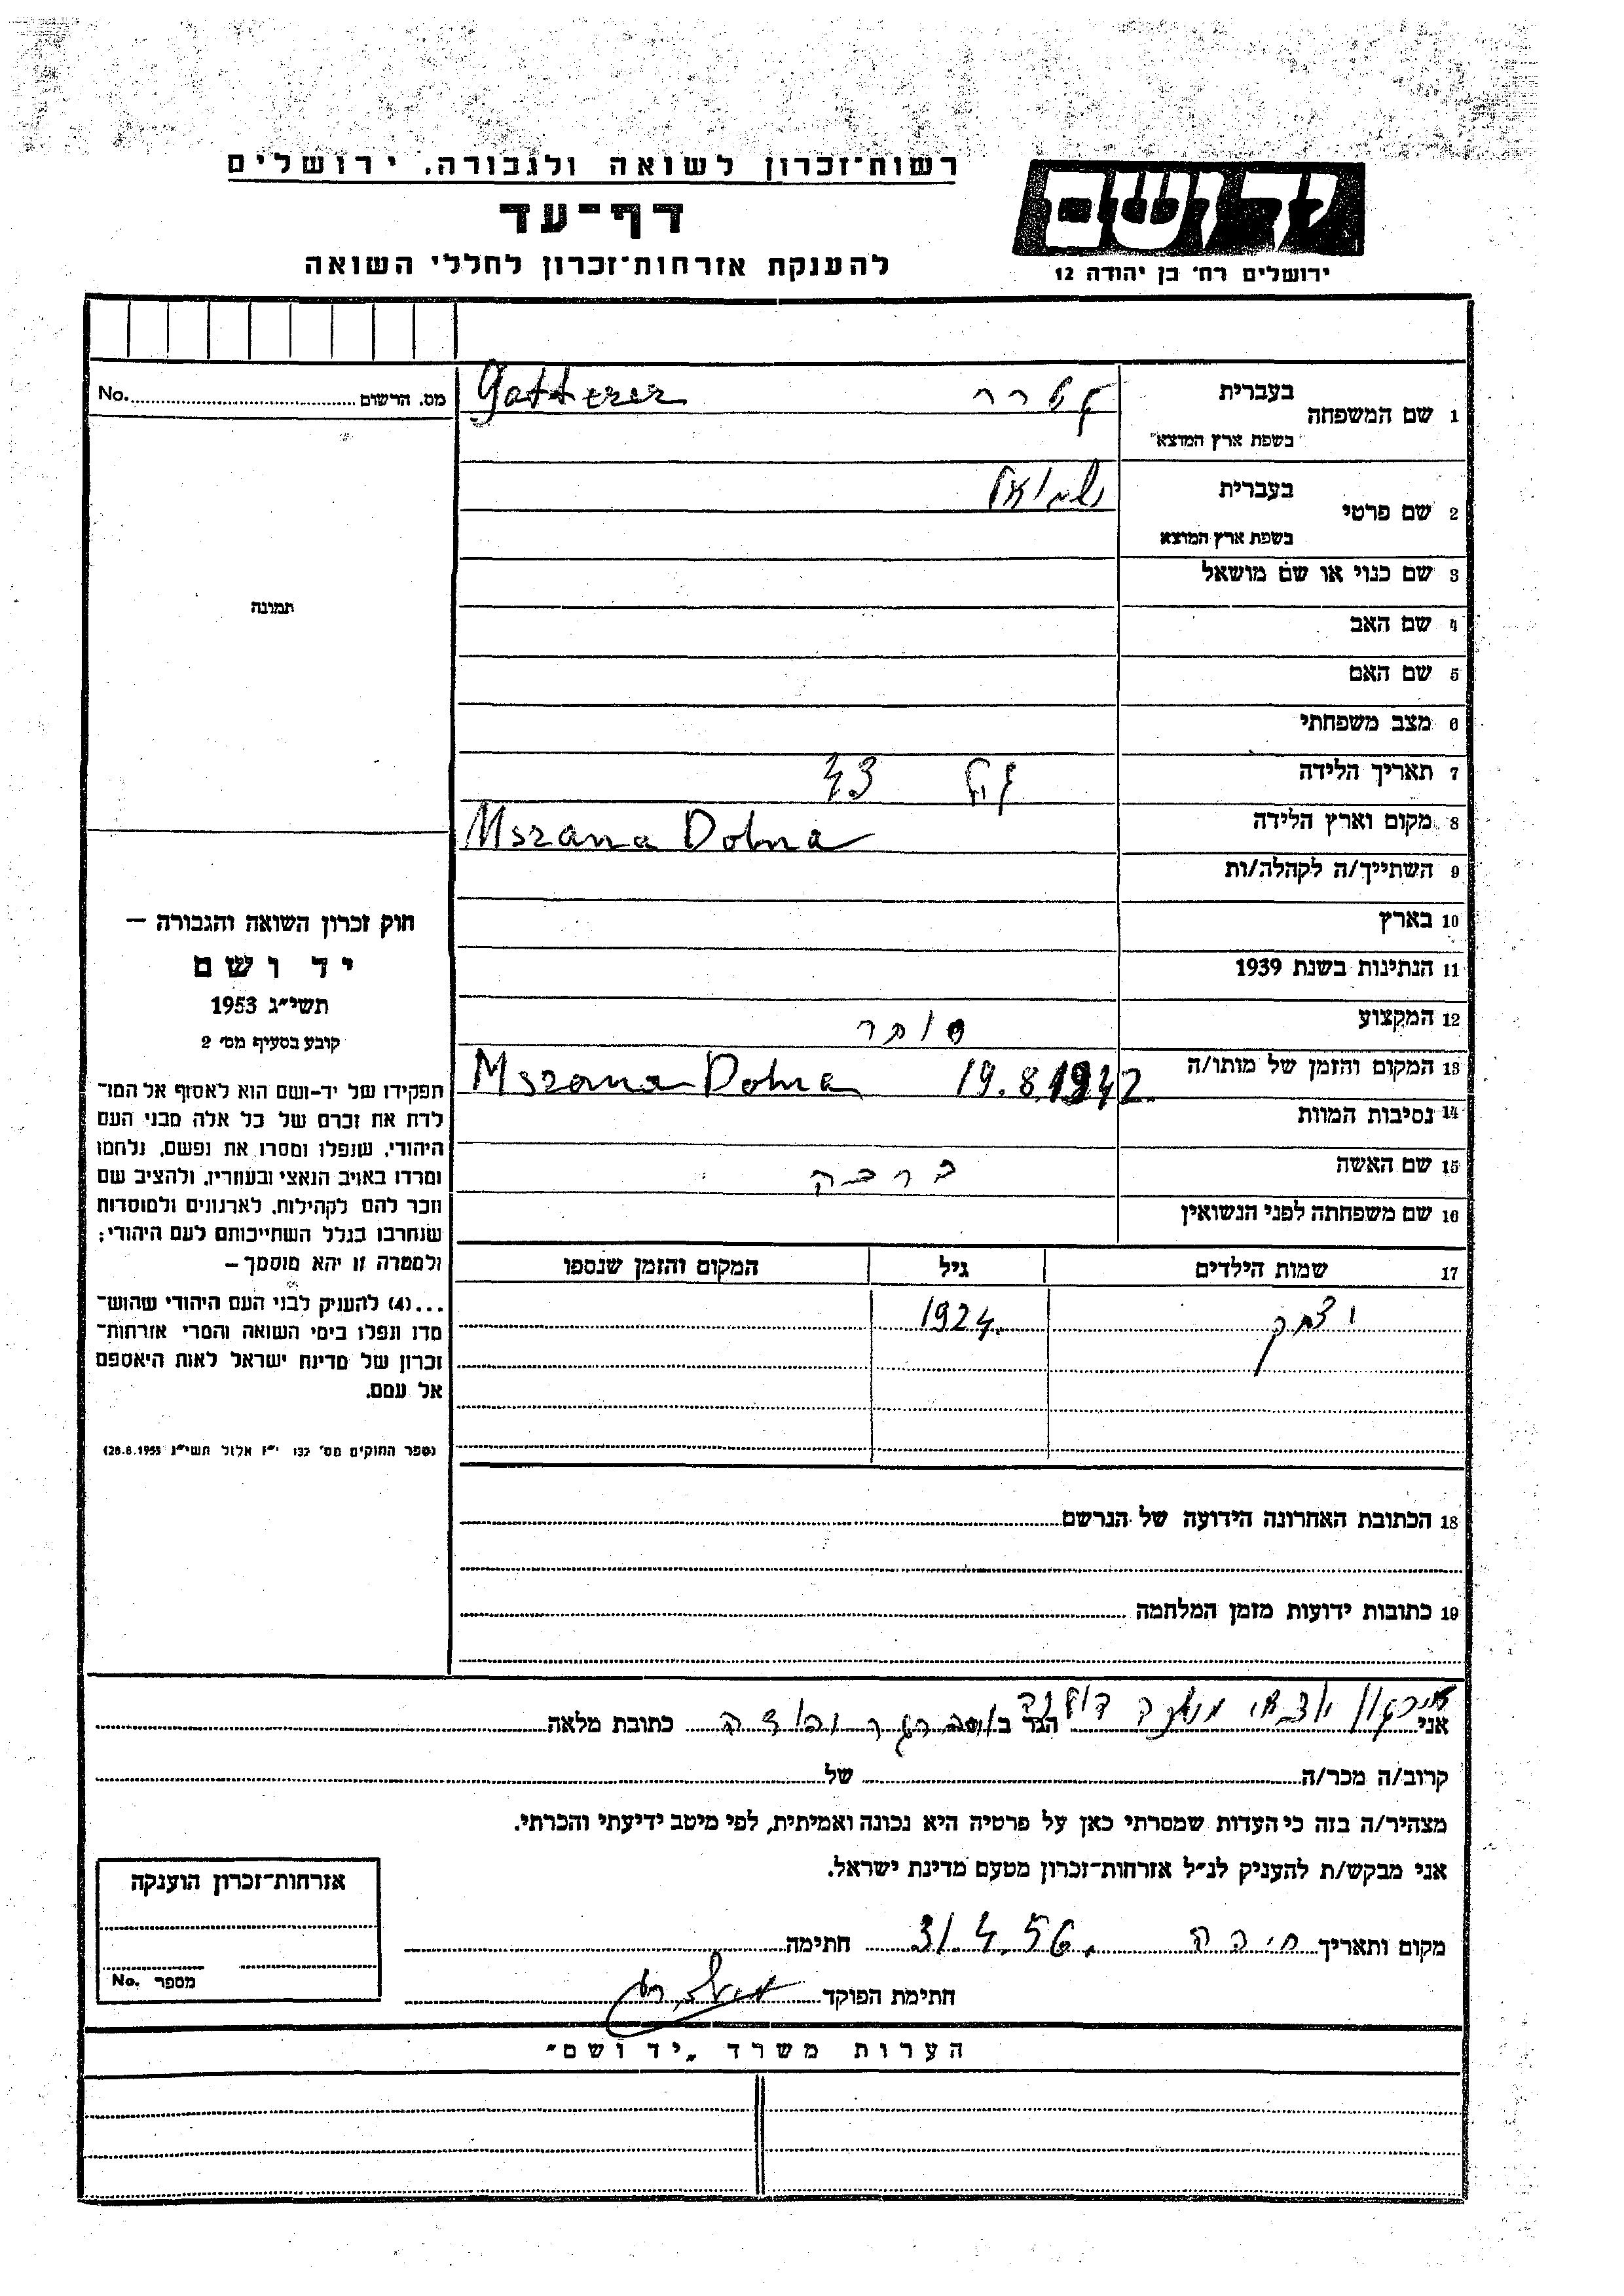 רשות־זכרון לשואה ולגבורה. ירושלים
דף־עד
להענקת אזרחות־זכרון לחללי השואה
ידושם
ירושלים רח׳ בן יהודה 12
בעברית
1 שם המשפחה
בשפת ארץ המוצא
גטרר Gatterer
מס. הרשום No.
2 שם פרטי
בעברית
בשפת ארץ המוצא
שמואל
3 שם כנוי או שם מושאל
4 שם האב
5 שם האם
6 מצב משפחתי
7 תאריך הלידה גיל 43
8 מקום וארץ הלידה Mszana Dolna
9 השתייך/ה לקהלה/ות
10 בארץ
11 הנתינות בשנת 1939
12 המקצוע סוחר
13 המקום והזמן של מותו/ה Mszana Dolna 19.8.1942
14 נסיבות המוות
15 שם האשה ברכה
16 שם משפחתה לפני הנשואין
17 שמות הילדים גיל המקום והזמן שנספו
יצחק 1924
18 הכתובת האחרונה הידועה של הנרשם
19 כתובות ידועות מזמן המלחמה
תמונה
חוק זכרון השואה והגבורה –
יד ושם
תשי״ג 1953
קובע בסעיף מס׳ 2
תפקידו של יד־ושם הוא לאסוף אל המו־
לדת את זכרם של כל אלה מבני העם
היהודי, שנפלו ומסרו את נפשם, נלחמו
ומרדו באויב הנאצי ובעוזריו, ולהציב שם
וזכר להם לקהילות, לארגונים ולמוסדות
שנחרבו בגלל השתייכותם לעם היהודי;
ולמטרה זו יהא מוסמך –
...(4) להעניק לבני העם היהודי שהוש־
מדו ונפלו בימי השואה והמרי אזרחות־
זכרון של מדינת ישראל לאות היאספם
אל עמם.
(ספר החוקים מס׳ 132 י״ז אלול תשי״ג 28.8.1953)
אני ארגון יוצאי משנה דולנה הגר ב כתובת מלאה
קרוב/ה מכר/ה של
מצהיר/ה בזה כי העדות שמסרתי כאן על פרטיה היא נכונה ואמיתית, לפי מיטב ידיעתי והכרתי.
אני מבקש/ת להעניק לנ״ל אזרחות־זכרון מטעם מדינת ישראל.
מקום ותאריך חיפה 31.4.56. חתימה
חתימת הפוקד
אזרחות־זכרון הוענקה
מספר No.
הערות משרד „יד ושם״